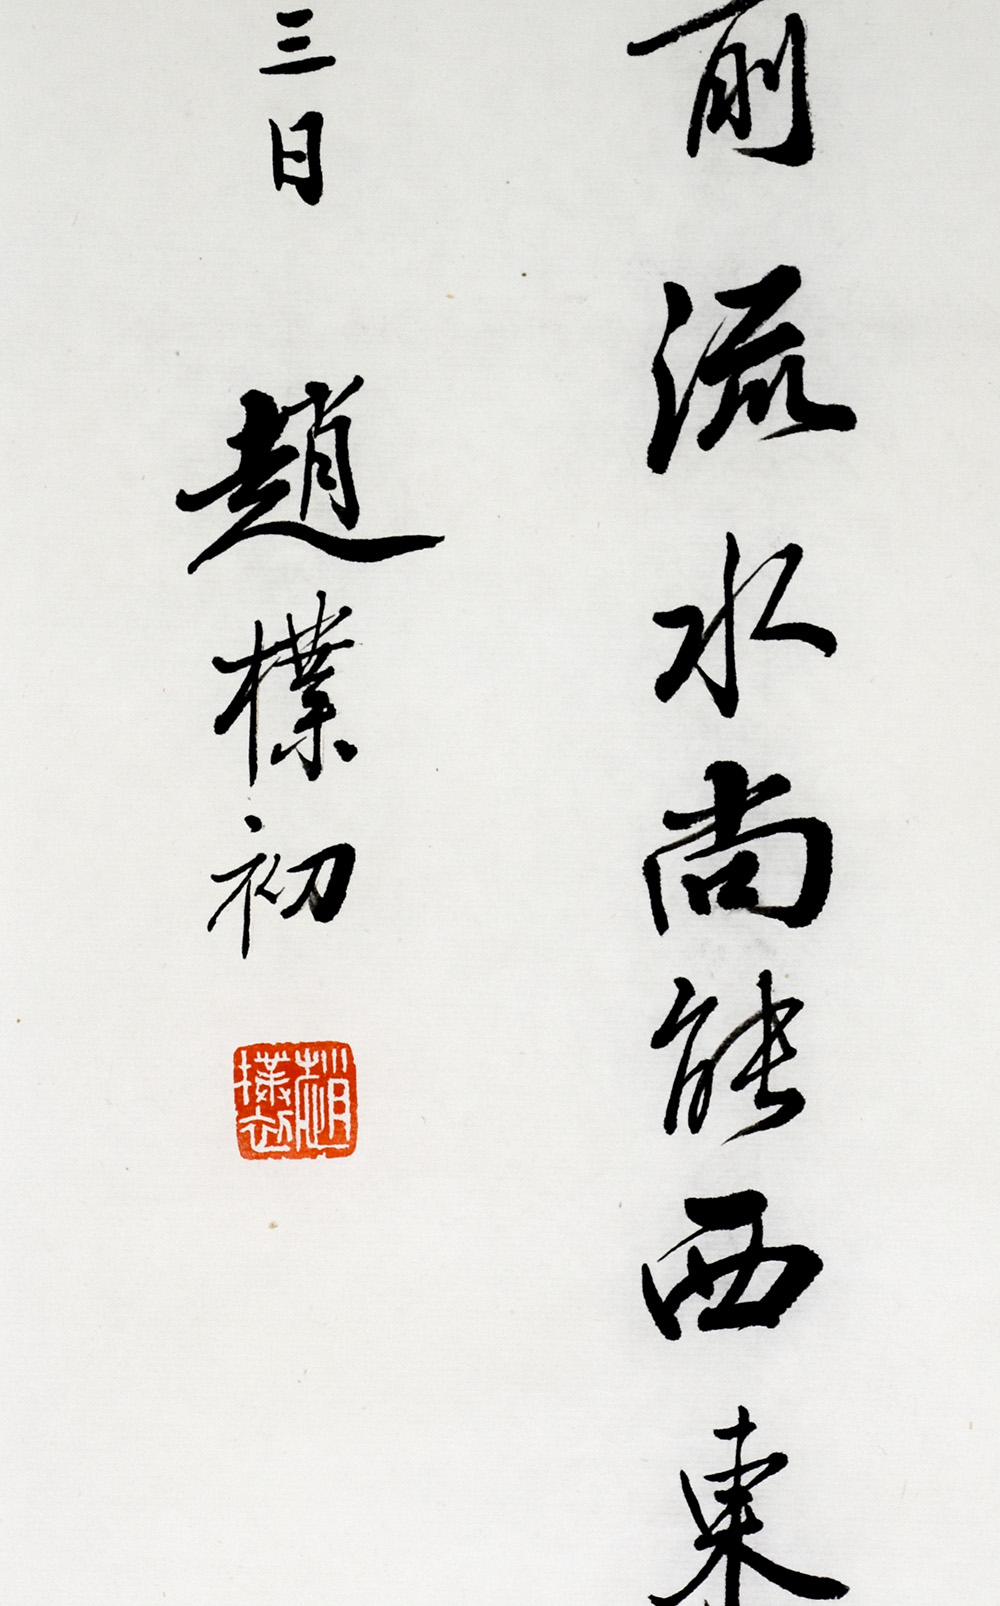 前流水尚能西東
三日 趙樸初
趙樸初